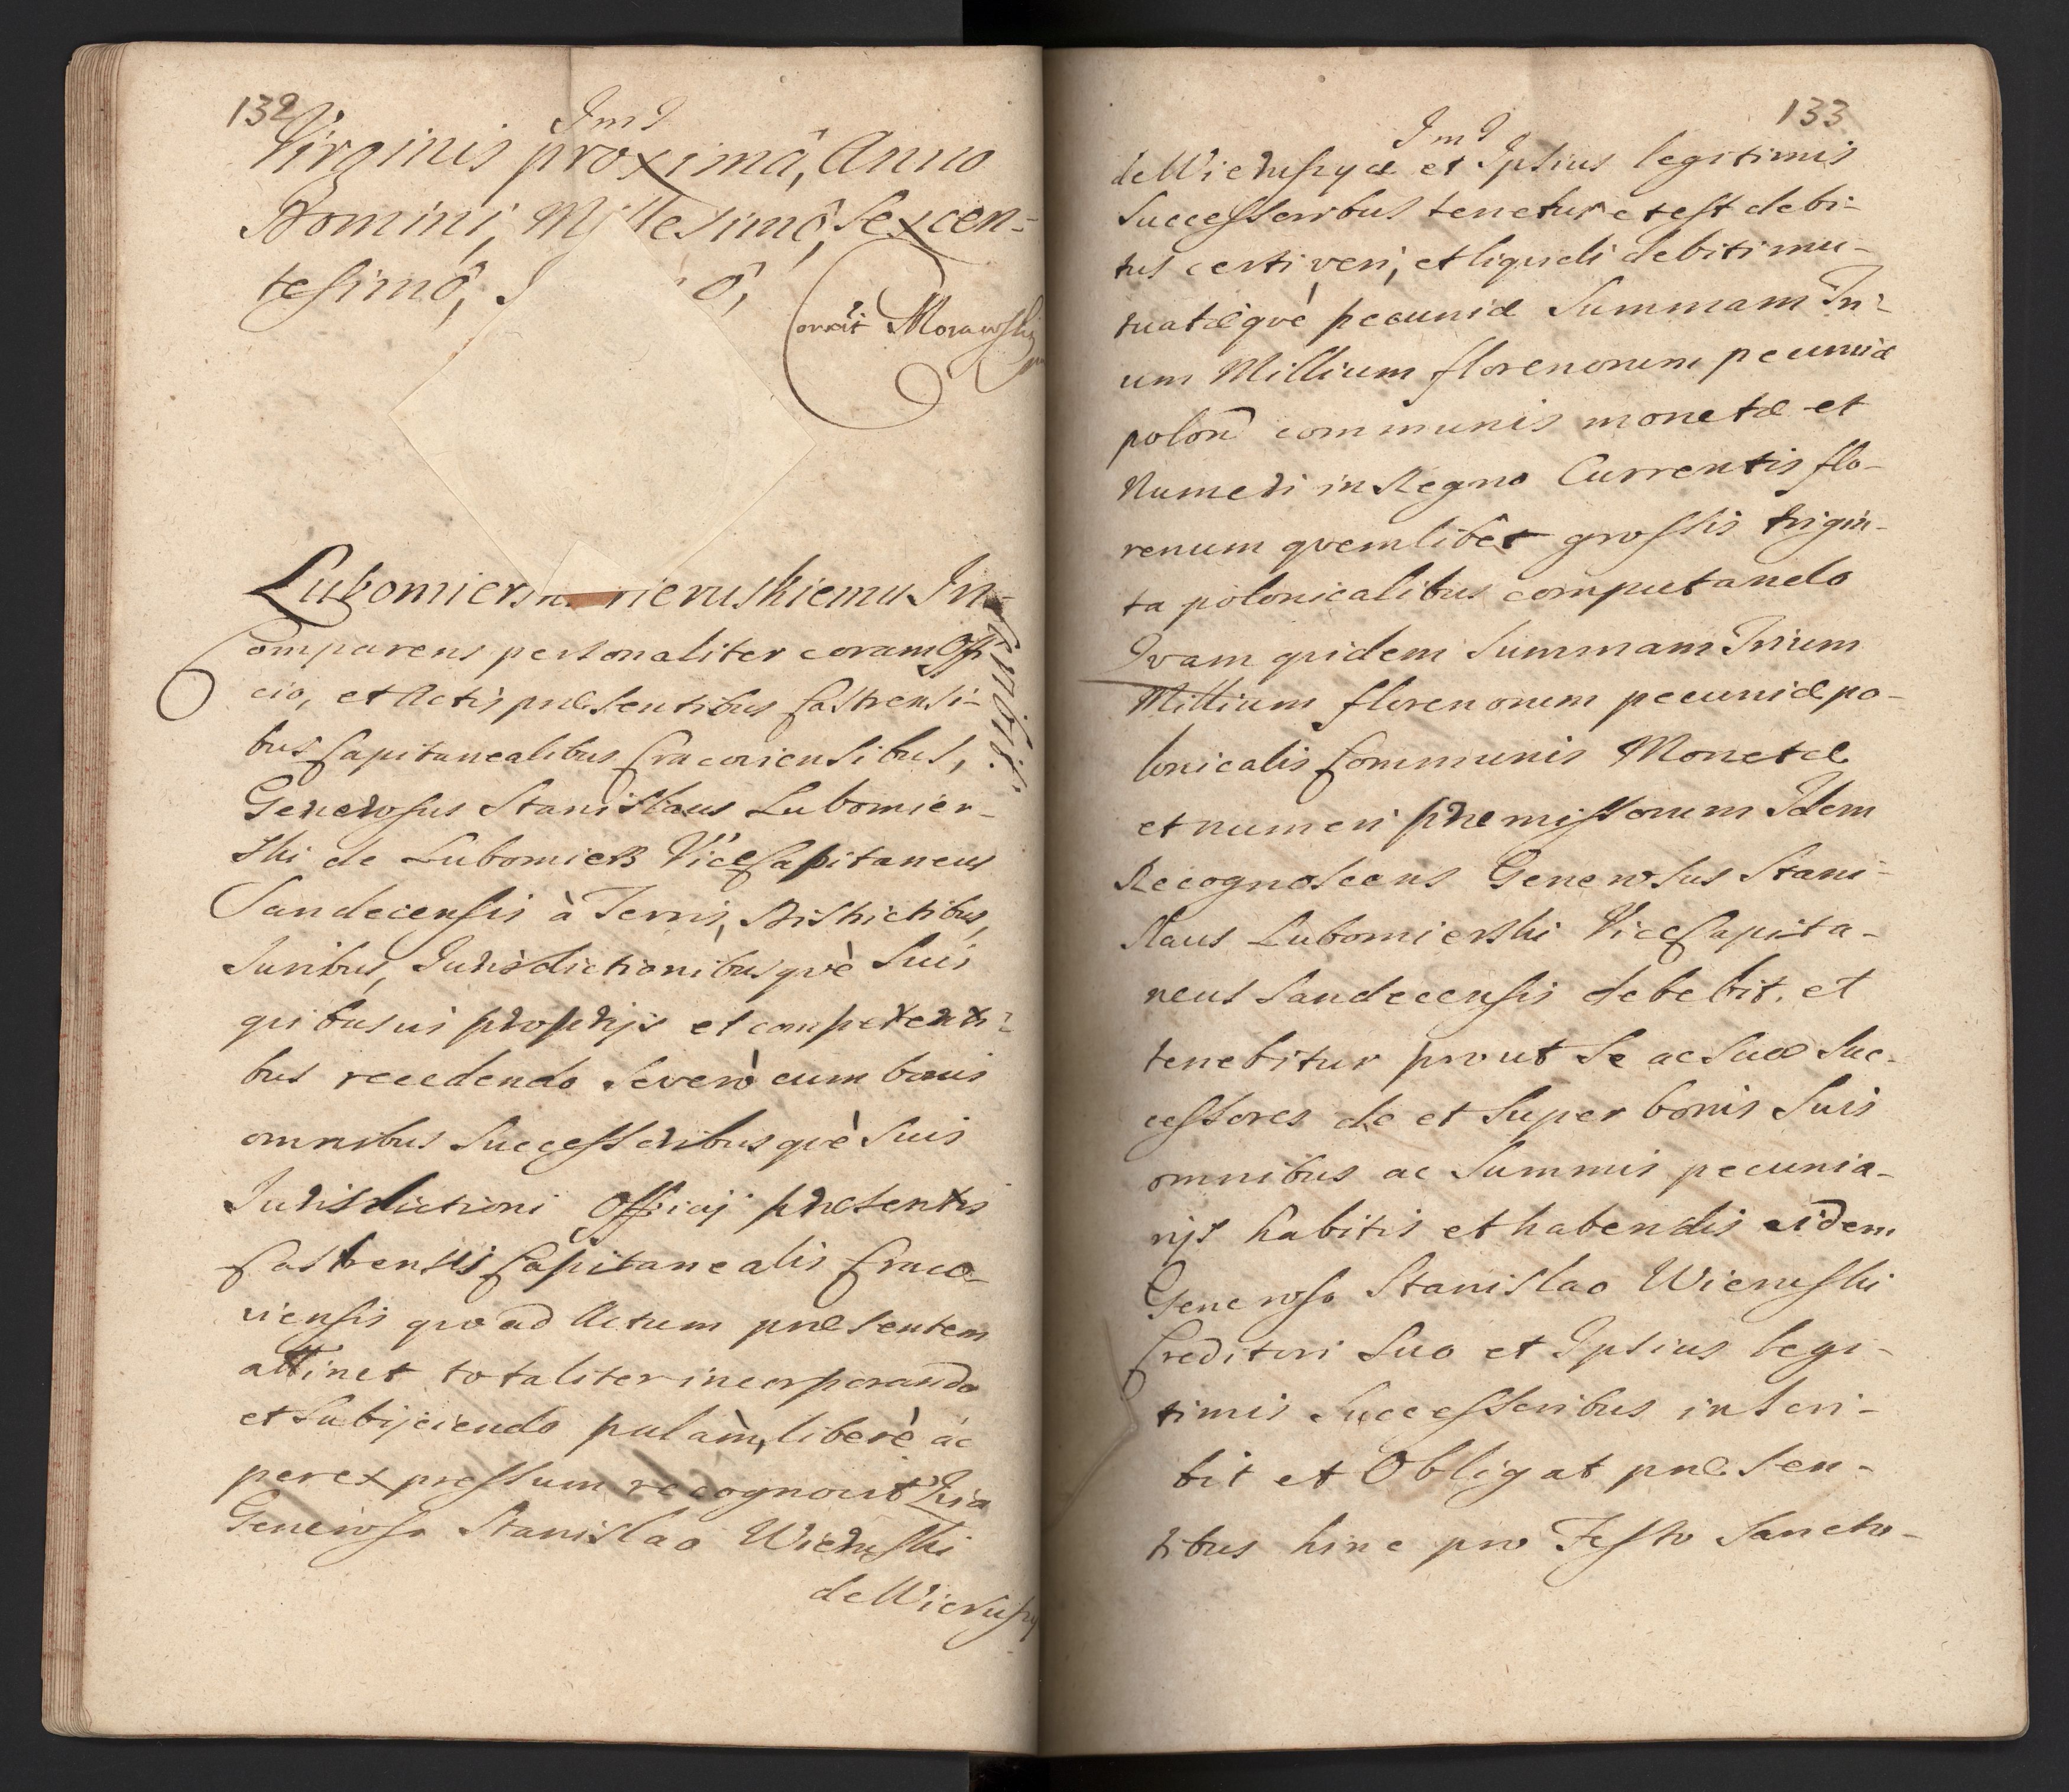 132
JmJ
Virginis proximâ, Anno
Domini, Millesimô, Sexcen-
tesimô,
Correxit Morawski
Lubomierski Wieruskiemu In-
scribit.
Comparens personaliter coram Offi
cio, et Actis præsentibus Castrensi-
bus Capitanealibus Cracoviensibus,
Generosus Stanislaus Lubomier-
ski de Lubomierz ViceCapitaneus
Sandecensis à Terris, Districtibus,
Juribus, Jurisdictionibusquè Suis
quibusvis proprijs et competenti-
bus recedendo Severò cum bonis
omnibus Successoribusquè Suis
Jurisdictioni Officij præsentis
Castrensis Capitanealis Craco-
viensis quo ad Actum præsentem
attinet totaliter incorporando
et Subijciendo palàm, liberè ác
per expressum recognovit Quia
Generoso Stanislao Wieruski
de Wieruszy
133
JmJ
de Wieruszycæ et Ipsius legitimis
Successoribus tenetur et est debi-
tus certi, veri, et liquidi debiti mu-
tuatæquè pecuniæ Summam Tri-
um Millium florenorum pecuniæ
polon communis monetæ et
Numeri in Regno Currentis flo-
renum quemlibet grossis trigin-
ta polonicalibus computando
Quam quidem Summam Trium
Millium florenorum pecuniæ po-
lonicalis Communis Monetæ
et numeri præmissorum Idem
Recognoscens Generosus Stani-
slaus Lubomierski ViceCapita-
neus Sandecensis debebit, et
tenebitur prout Se ac Suos Suc-
cessores de et Super bonis Suis
omnibus ac Summis pecunia-
rijs habitis et habendis eidem
Generoso Stanislao Wieruski
Creditori Suo et Ipsius legi-
timis Successoribus inscri-
bit et Obligat præsen-
tibus hinc pro Festo Sancto-